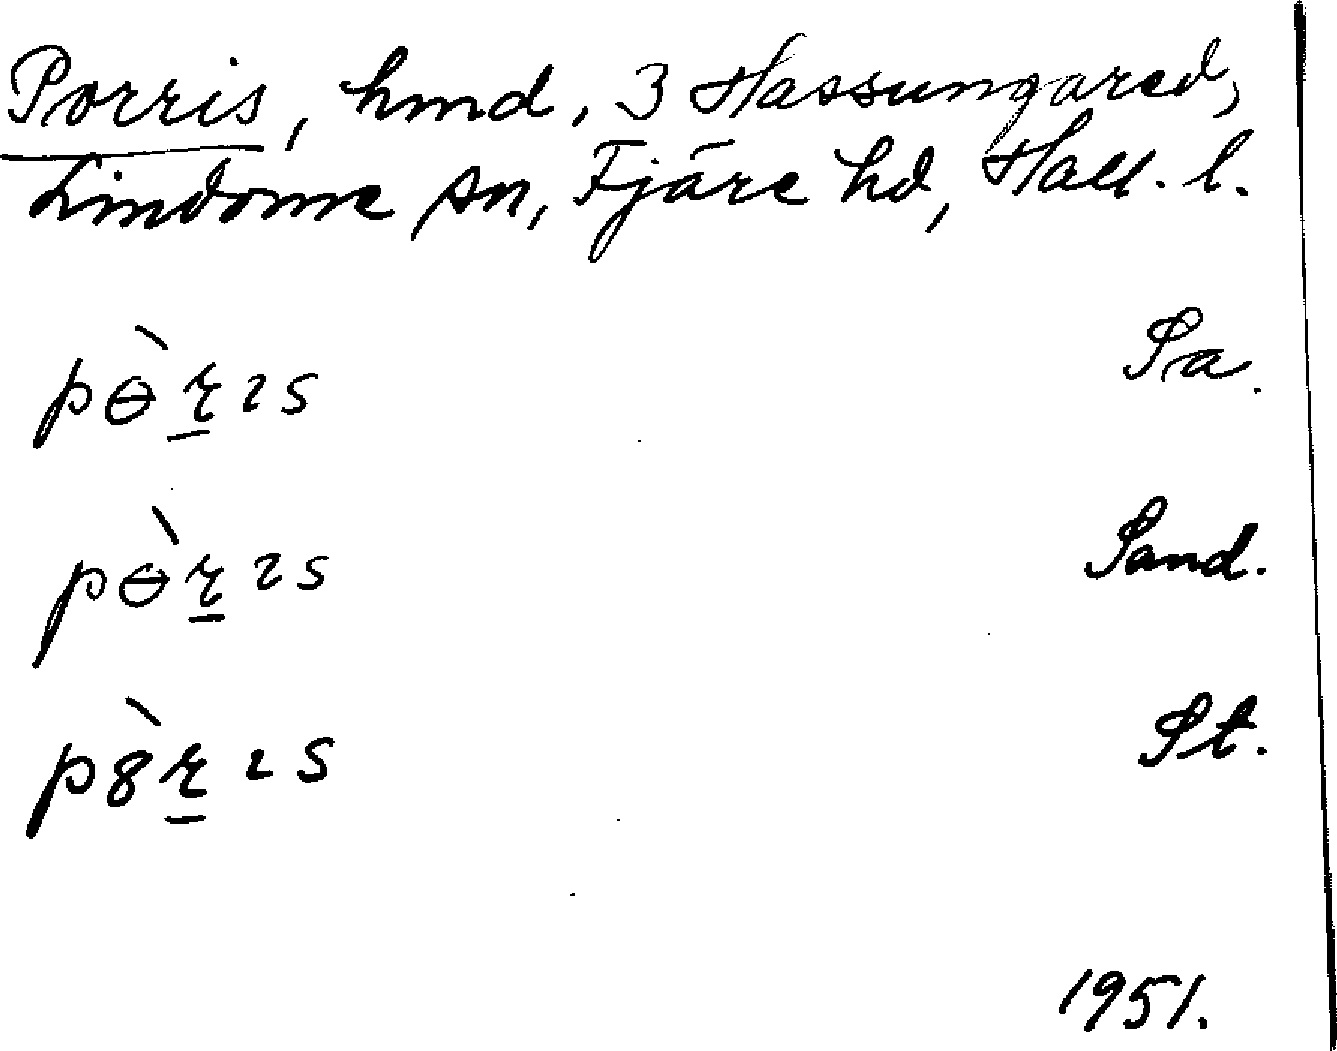 Porris, hmd, 3 Hassungared,
Lindome sn, Fjäre hd, Hall. l.
pɵ̀ɽıs Sa.
pɵ̀ɽıs Sand.
p8̀ɽıs St.
1951.